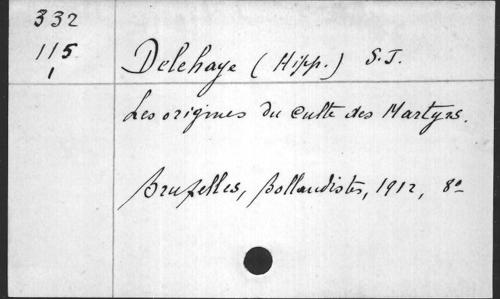 332
115
1
Delehaye (Hipp.) S.J.
Les origines du culte des Martyrs.
Bruxelles, Bollandistes, 1912, 8º